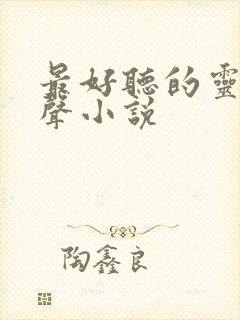 最好聽的靈
聲小說
陶鑫良